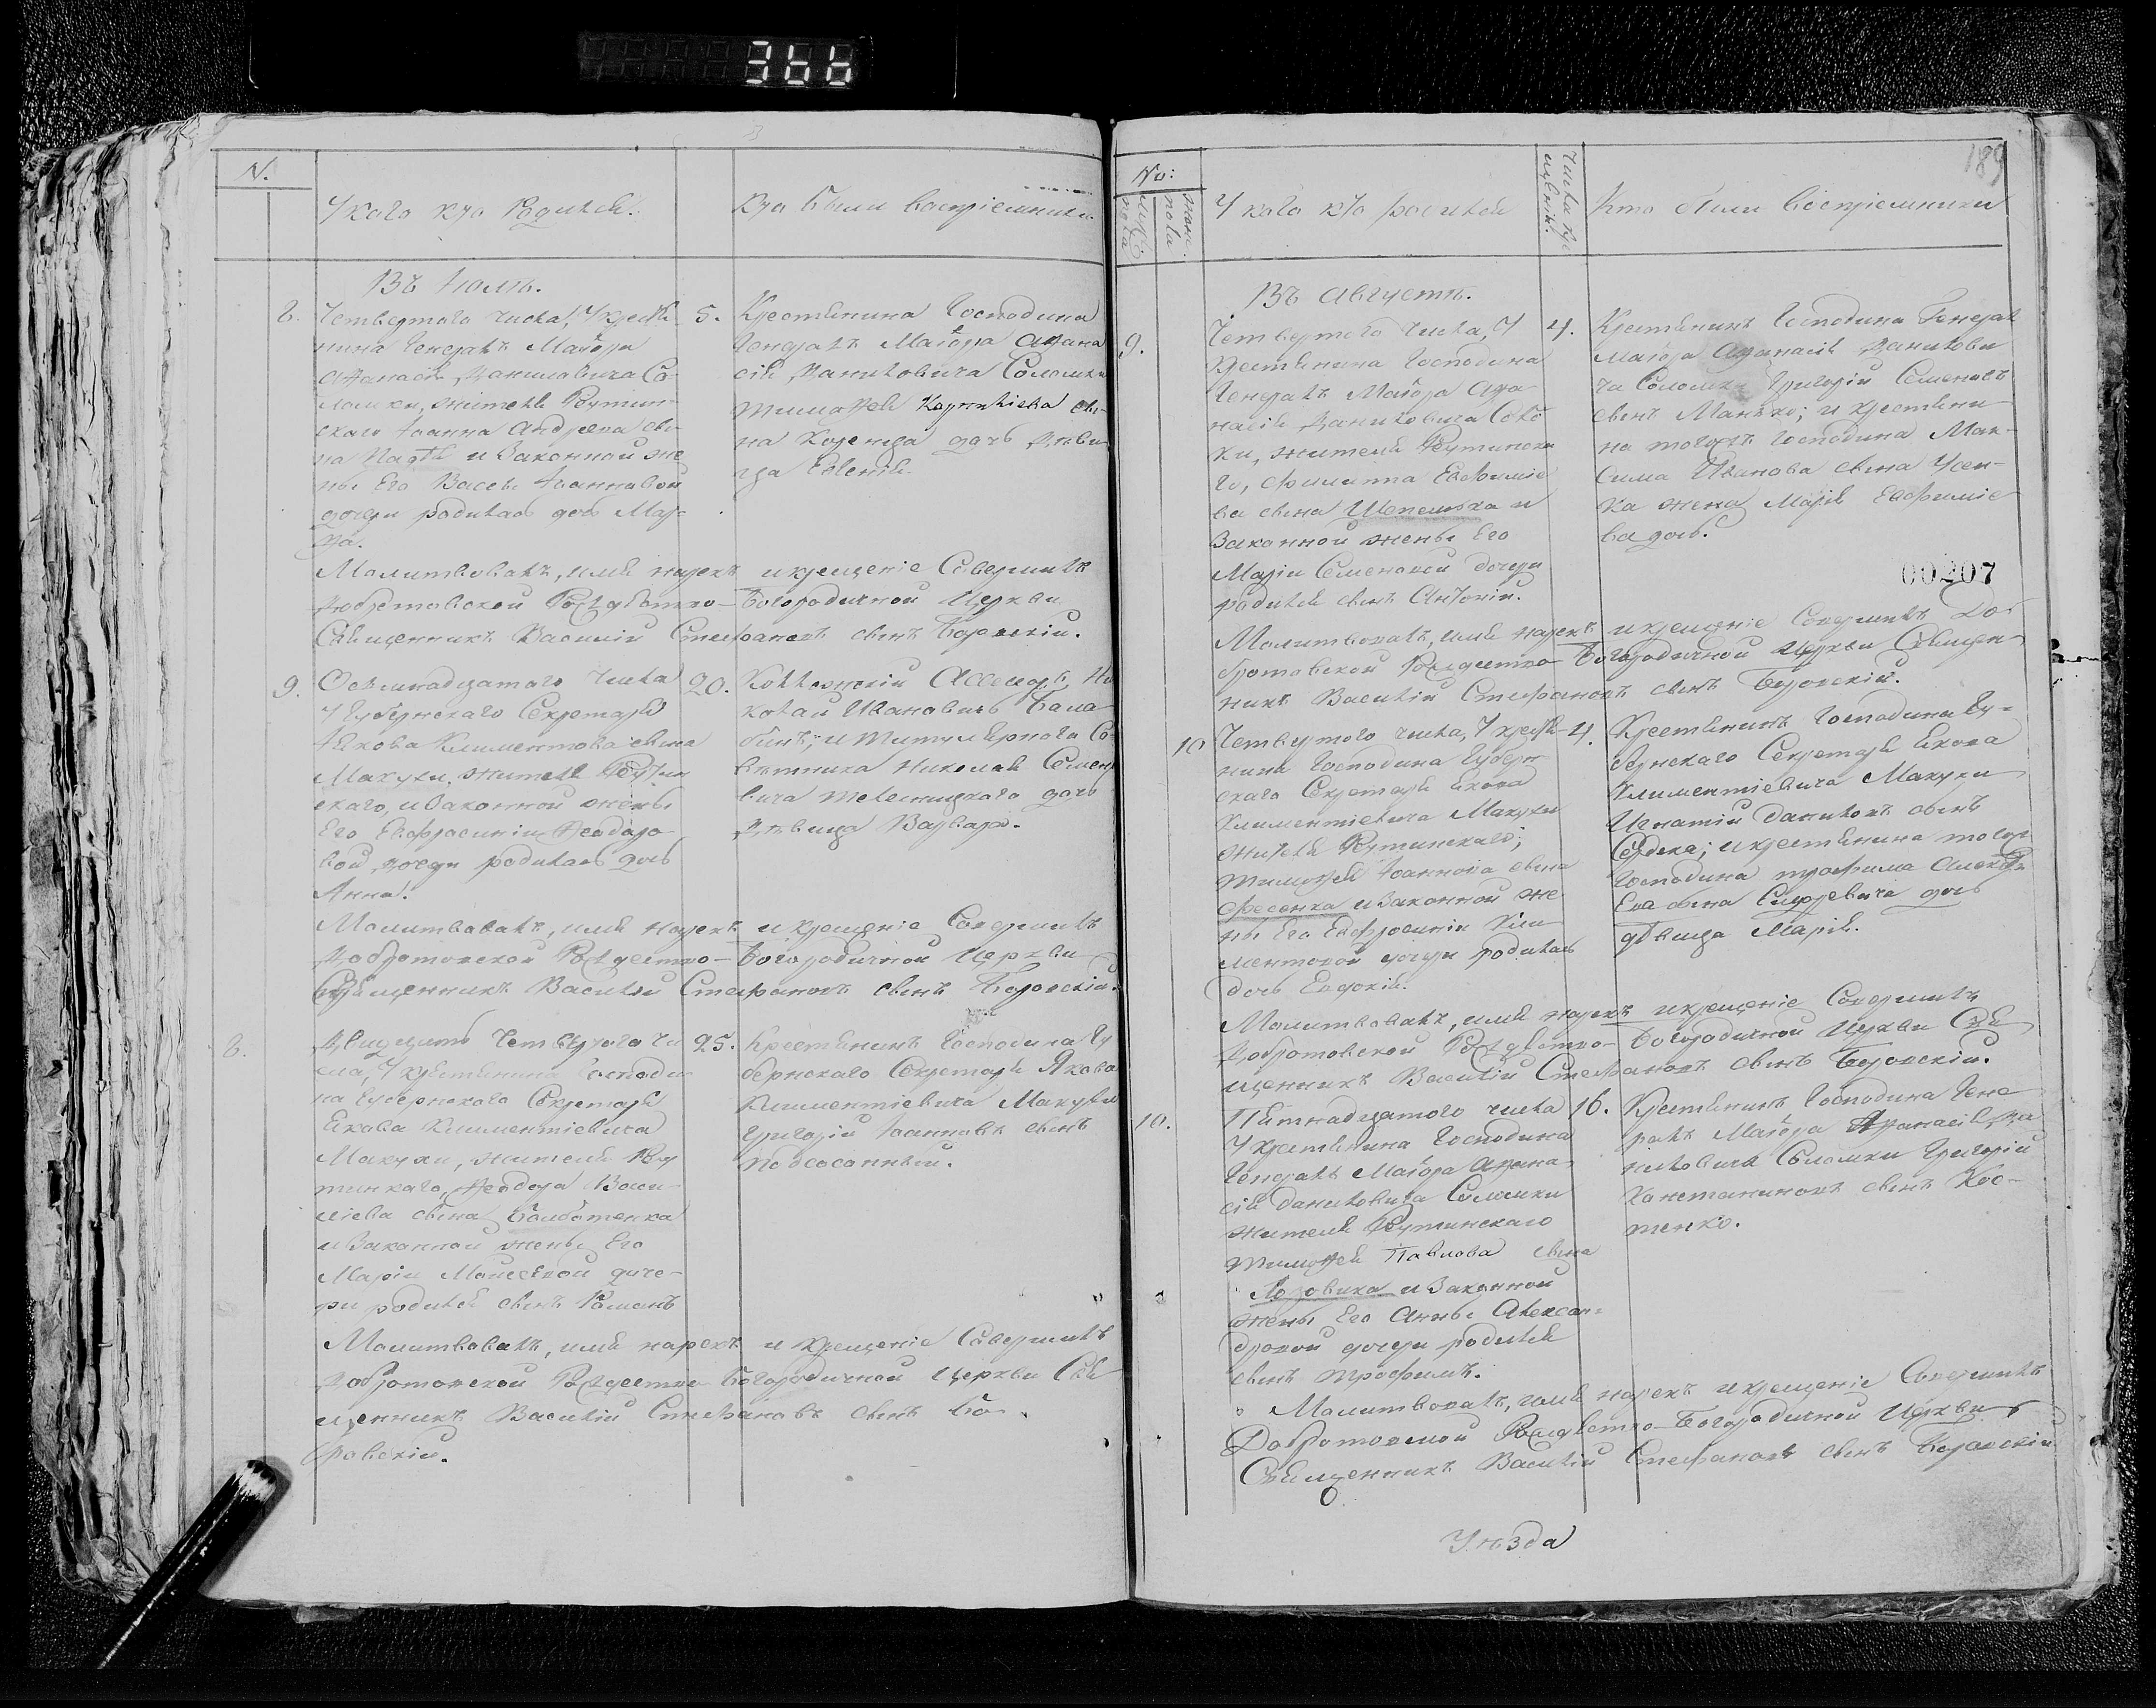 366
N.
У кого кто Родился.
Кто были восприемники
Въ Июлѣ.
8. Четвертого числа, У крестья-
нина Генералъ Маіора
Афанасія Даниловича Со-
ломки, жителя Рутин-
скаго Іоанна Андреева сы-
на и Законной же
ны Его Вассы Іоанновой
дочери родилась дочь Мар-
фа.
5. Крестьянина Господина
Генералъ Маіора Афана
сія Даниловича Соломки
Тимофея Корнилиева сы-
на дочь дѣви
ца Евгенія.
Молитвовалъ, имя нарекъ и крещеніе Совершилъ
Добротовской Рождество-Богородичной Церкви
Священникъ Василій Стефановъ сынъ Боровскій.
9. Осемнадцатого числа
У Губернского Секретаря
Якова Климентова сына
Макухи, жителя Рутин
скаго, и Законной жены
Его Евфросиніи Феодоро-
вой дочери родилась дочь
Анна.
20. Коллежскій Ассесоръ Ни
колай Ивановичъ Бала-
бинъ; и Титулярнаго Со-
вѣтника Николая Семено
вича дочь
Дѣвица Варвара.
Молитвовалъ, имя нарекъ и крещеніе Совершилъ
Добротовской Рождество-Богородичной Церкви
Священникъ Василій Стефановъ сынъ Боровскій.
8. Двадцать Четвертого чи
сла, У крестьянина Господи
на Губернского Секретаря
Якова Климентіевича
Макухи, жителя Ру
тинскаго, Феодора Васи-
ліева сына
и Законной жены Его
Маріи Моисеевой доче-
ри родился сынъ Романъ
25. Крестьянинъ Господина Гу
бернскаго Секретаря Якова
Климентіевича Макухи
Григорій Іоанновъ сынъ
Подсосонный.
Молитвовалъ, имя нарекъ и крещеніе Совершилъ
Добротовской Рождество-Богородичной Церкви Свя
щенникъ Василій Стефановъ сынъ Бо-
ровскій.
189
No:
муже. пола
жене. пола
У кого кто родился
Числа кре
щенія.
Кто были воспріемники
Въ Августѣ.
9. Четвертого числа, У
крестьянина Господина
Генералъ Маіора Афа-
насія Даниловича Солом
ки, жителя Рутинска
го, Филиппа Евфиміе
ва сына и
Законной жены Его
Маріи Семеновой дочери
родился сынъ Антоній.
4. Крестьянинъ Господина Генералъ
Маіора Афанасія Данилови
ча Соломки Григорій Семеновъ
сынъ Манько; и крестьяни-
на тогожъ Господина Мак-
сима Иванова сына Усен-
ка жена Марія Евфиміе
ва дочь.
00207
Молитвовалъ, имя нарекъ и крещеніе Совершилъ До-
бротовской Рождество-Богородичной Церкви Священ-
никъ Василій Стефановъ сынъ Боровскій.
10 Четвертого числа, У крестья-
нина Господина Губерн
скаго Секретаря Якова
Климентіевича Макухи
жителя Рутинскаго,
Тимофея Іоаннова сына
Фесенка и Законной же
ны Его Евфросиніи Кли
ментовой дочери родилась
дочь Евдокія.
4. Крестьянинъ Господина Гу-
бернскаго Секретаря Якова
Климентіевича Макухи
Игнатій Даниловъ сынъ
Середека; и крестьянина тогожъ
Господина Трофима Алексѣ
ева сына дочь
дѣвица Марія.
Молитвовалъ, имя нарекъ и крещеніе Совершилъ
Добротовской Рождество-Богородичной Церкви Свя
щенникъ Василій Стефановъ сынъ Боровскій.
10. Пятнадцатого числа
У крестьянина Господина
Генералъ Маіора Афана-
сія Даниловича Соломки
жителя Рутинскаго
Тимофея Павлова сына
и Законной
жены Его Анны Алексан-
дровой дочери родился
сынъ Трофимъ.
16. Крестьянинъ Господина Гене
ралъ Маіора Афанасія Да
ниловича Соломки Григорій
Константиновъ сынъ Кос-
тенко.
Молитвовалъ, имя нарекъ и крещеніе Совершилъ
Добротовской Рождество-Богородичной Церкви
Священникъ Василій Стефановъ сынъ Боровскій
Уѣзда